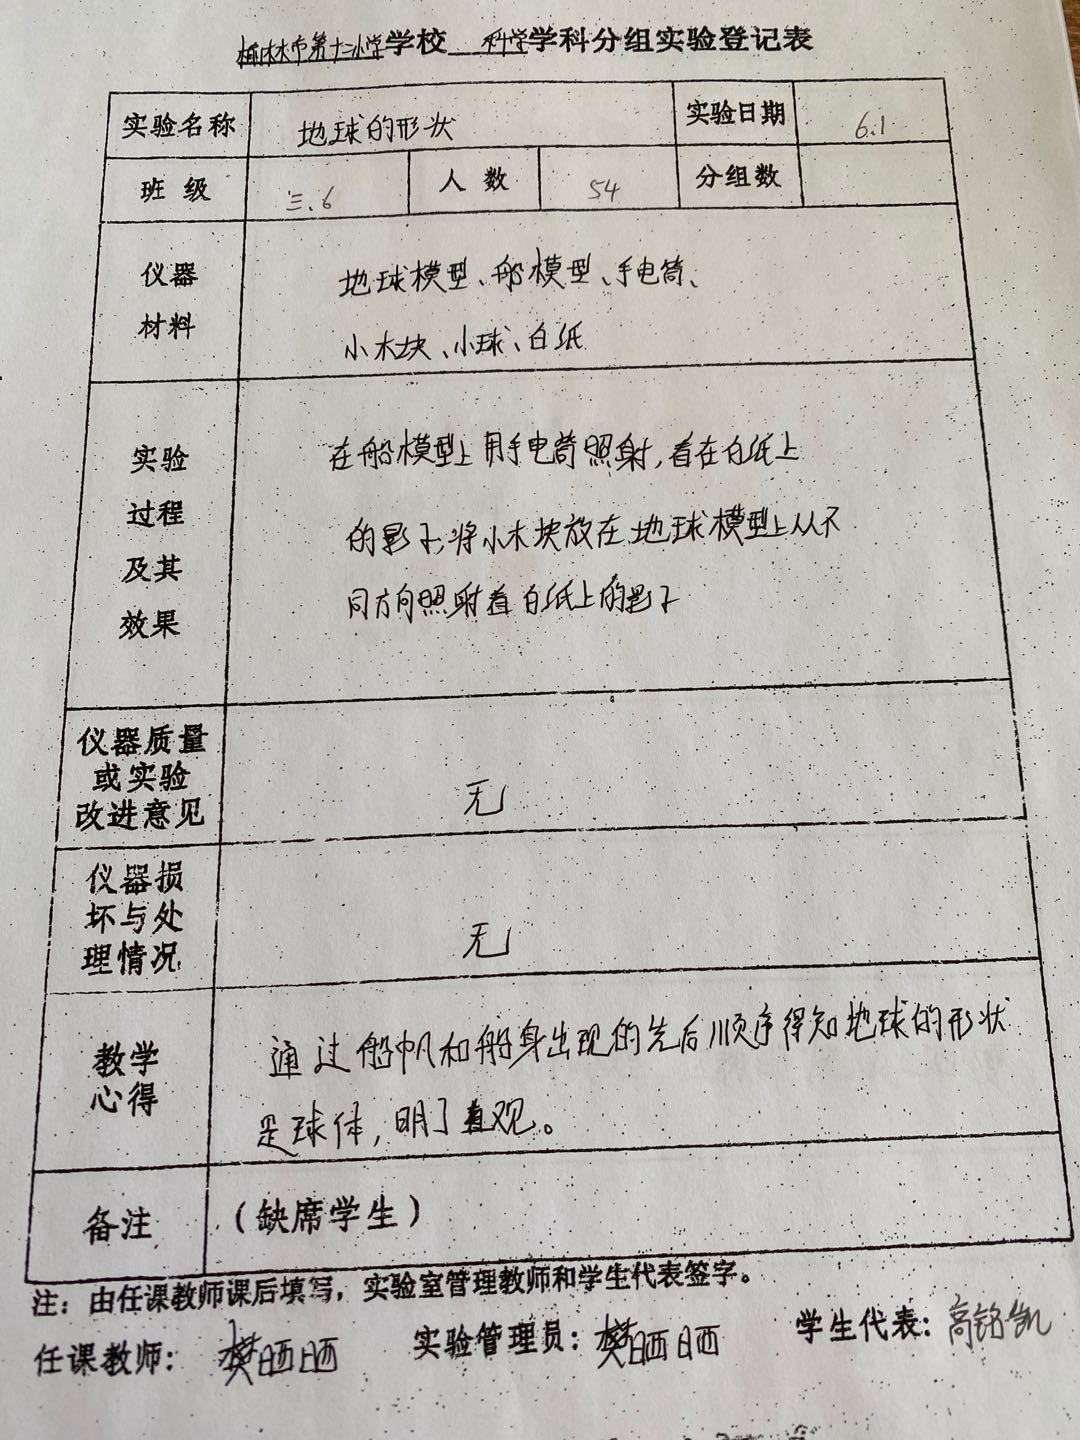 榆林市第十二小学学校 科学学科分组实验登记表
实验名称 地球的形状 实验日期 6.1
班级 三.6 人数 54 分组数
仪器材料
地球模型、船模型、手电筒、
小木块、小球、白纸
实验过程及其效果
在船模型上用手电筒照射,看在白纸上
的影子,将小木块放在地球模型上从不
同方向照射看白纸上的影子
仪器质量或实验改进意见 无
仪器损坏与处理情况 无
教学心得
通过船帆和船身出现的先后顺序得知地球的形状
是球体,明了直观。
备注 (缺席学生)
注:由任课教师课后填写,实验室管理教师和学生代表签字。
任课教师: 樊晒晒 实验管理员: 樊晒晒 学生代表: 高铭凯